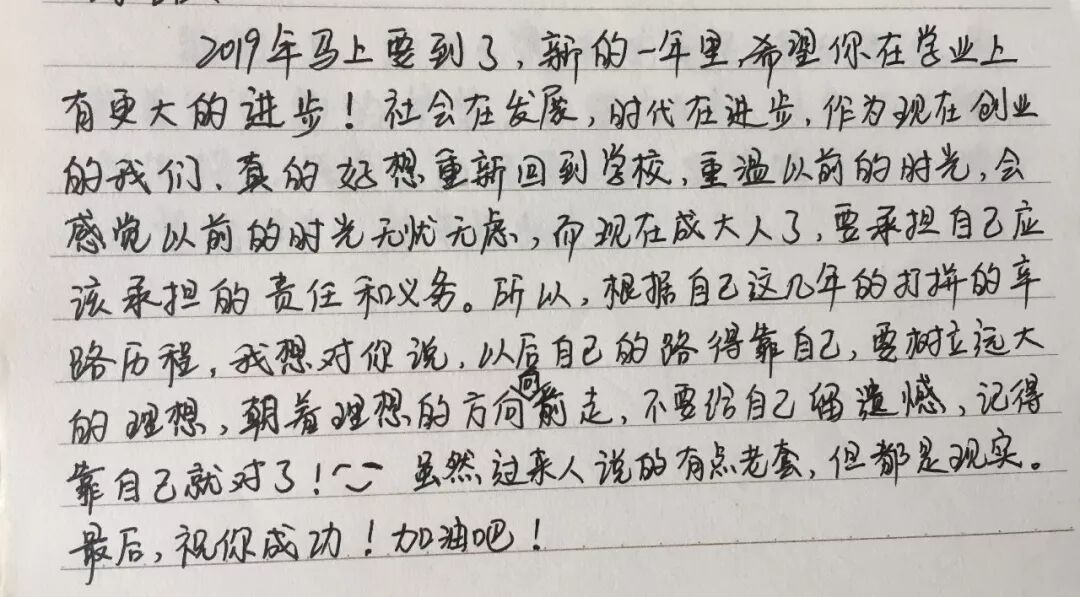 2019年马上要到了，新的一年里，希望你在学业上
有更大的进步！社会在发展，时代在进步，作为现在创业
的我们，真的好想重新回到学校，重温以前的时光，会
感觉以前的时光无忧无虑，而现在成大人了，要承担自己应
该承担的责任和义务。所以，根据自己这几年的打拼的辛
路历程，我想对你说，以后自己的路得靠自己，要树立远大
的理想，朝着理想的方向向前走，不要给自己留遗憾，记得
靠自己就对了！虽然过来人说的有点老套，但都是现实。
最后，祝你成功！加油吧！